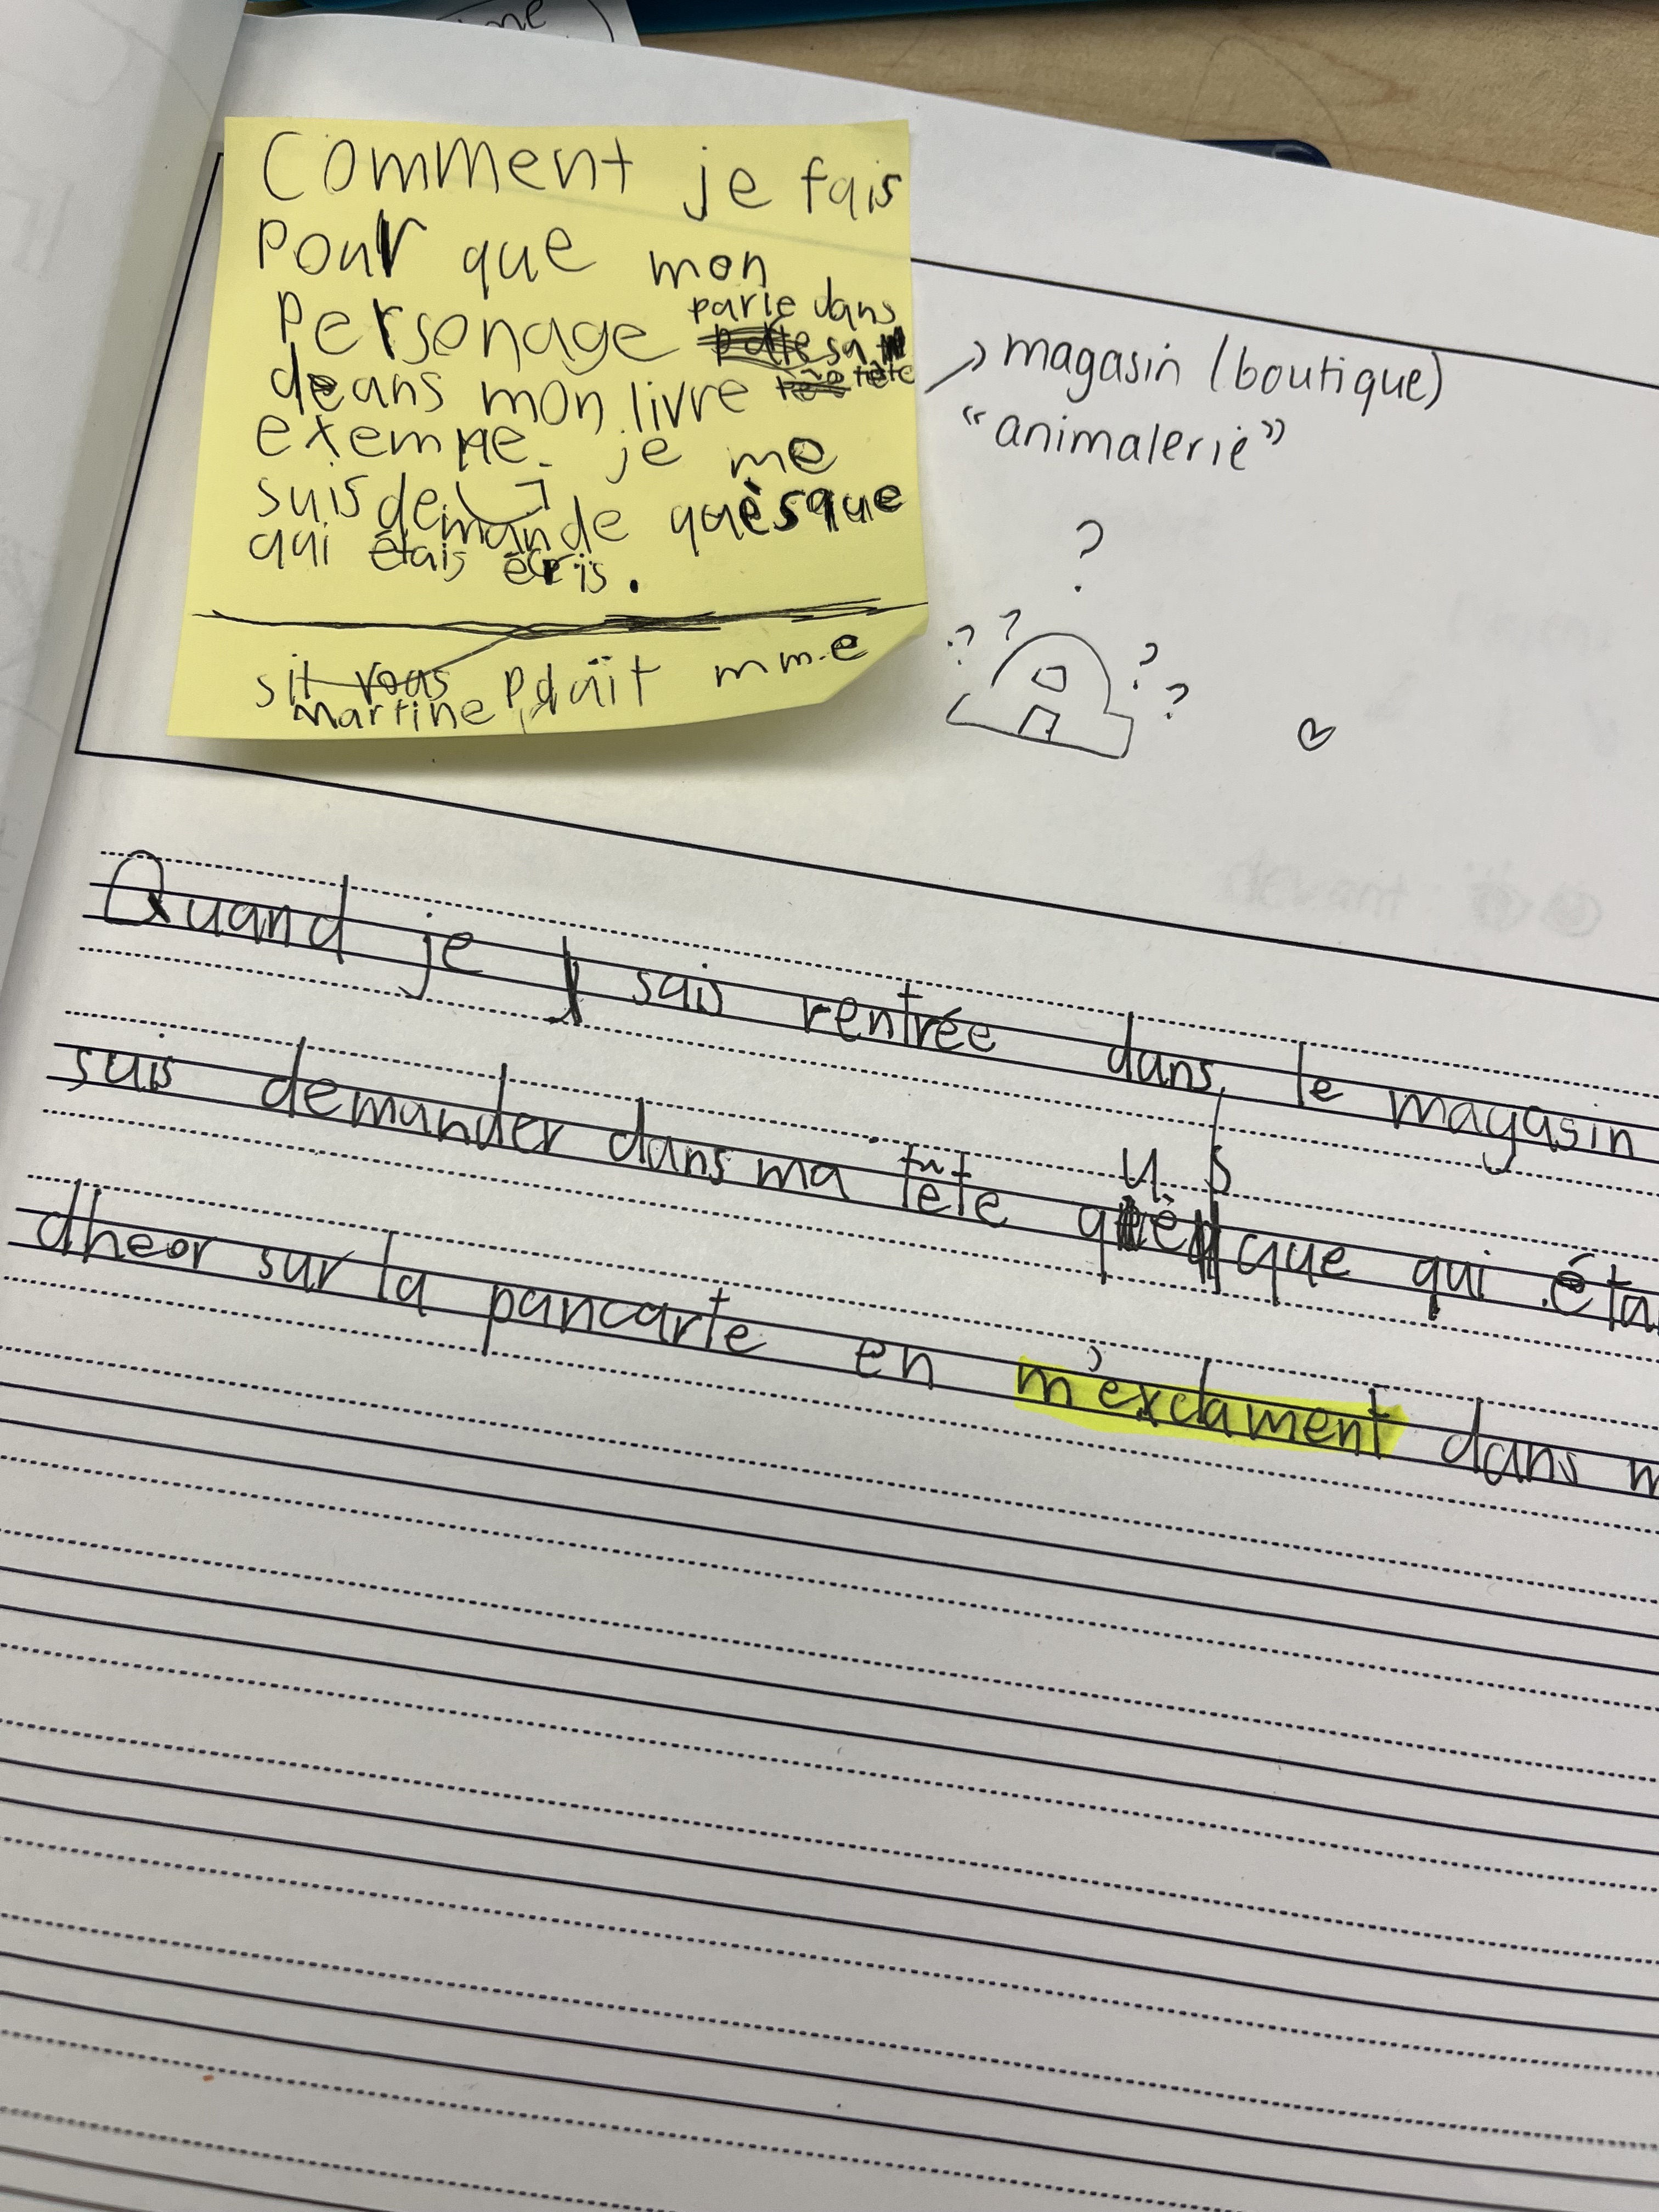 me
Comment je fais
pour que mon
personage parle dans
sa tête
deans mon livre
exemple je me
suis demande quèsque
qui étais écris.
sit vous plaît mm.e
martine
magasin (boutique)
"animalerie"
?
? ? ? ?
Quand je sais rentrée dans le magasin
suis demander dans ma tête
u s
que qui éta
dheor sur la pancarte en m'exclament dans m